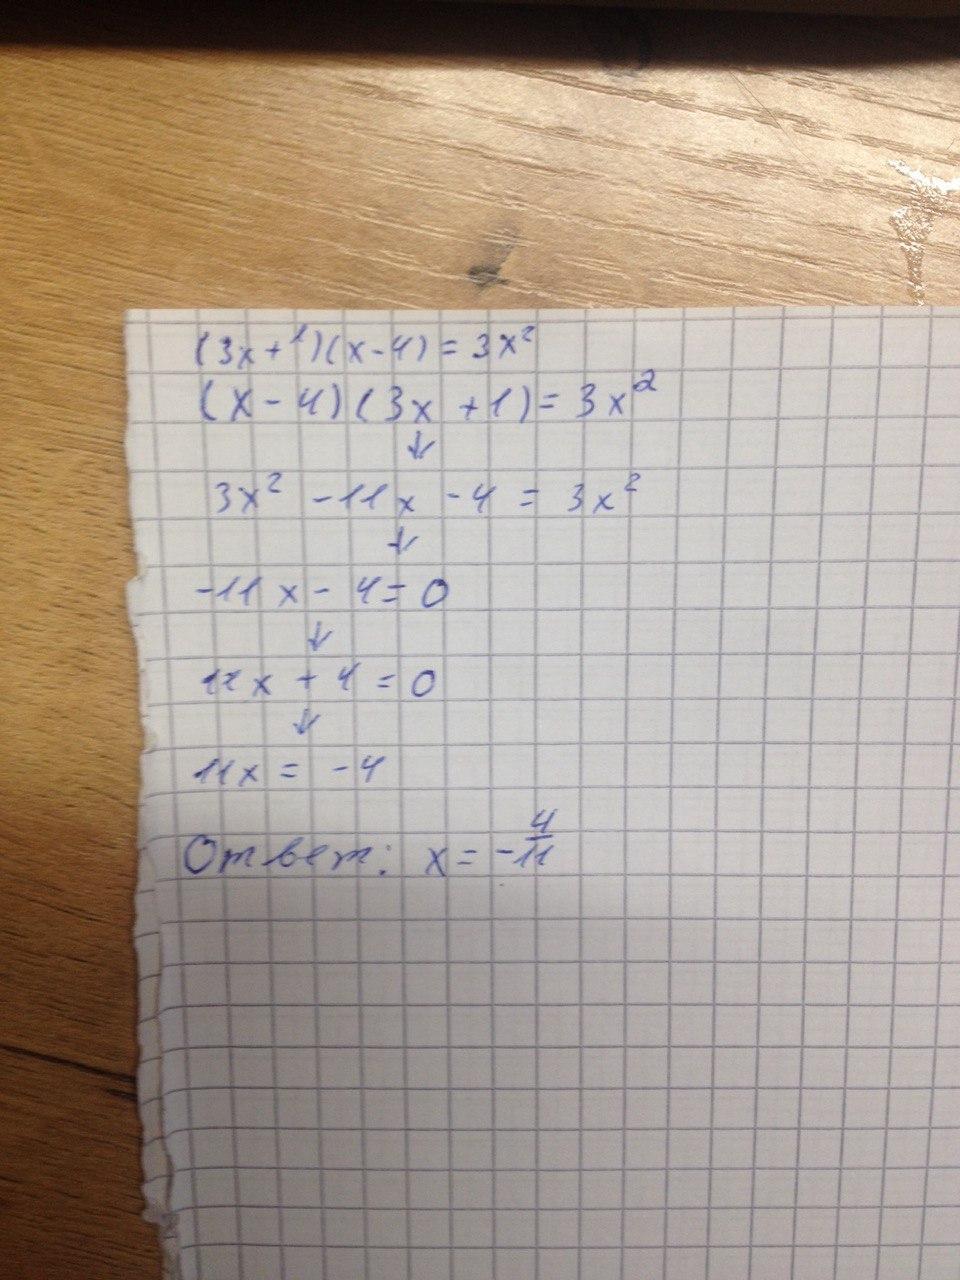 (3x+1)(x-4)=3x²
(x-4)(3x+1)=3x²
↓
3x² -11x -4 = 3x²
↓
-11x - 4 = 0
↓
11x + 4 = 0
↓
11x = -4
Ответ: x = -4/11